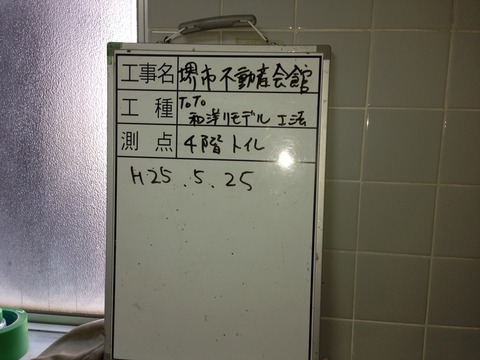 工事名 堺市不動産会館
工種 TOTO
和洋リモデル工法
測点 4階トイレ
H25.5.25